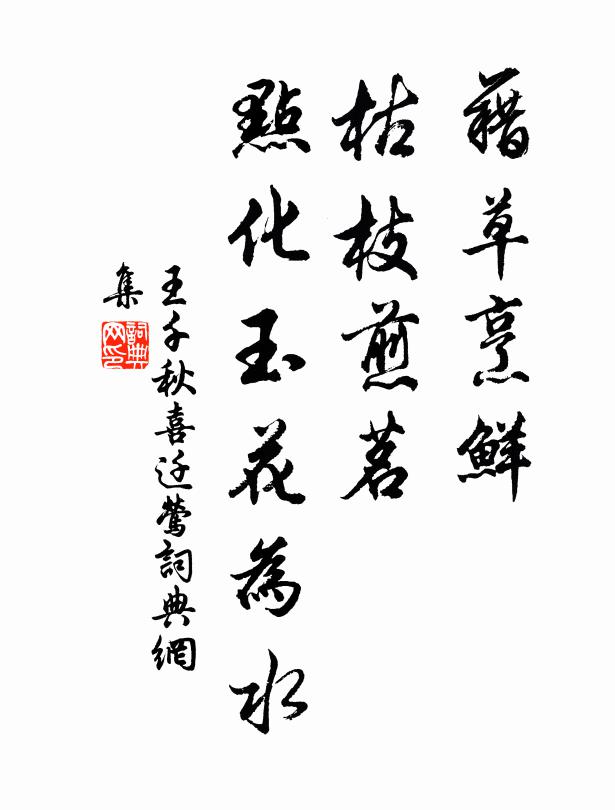 藉草烹鮮
枯枝煎茗
點化玉花為水
王千秋喜迁鶯詞典網
集
詞典网印